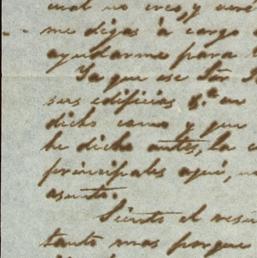 cual no creo, y veré
me digas à cargo
ayudarme para
Ya que ese Sor
sus edificios qe. en
dicho como y que
he dicho antes, la c
principales aquí, no
asunto.
Siento el resu
tanto mas porque